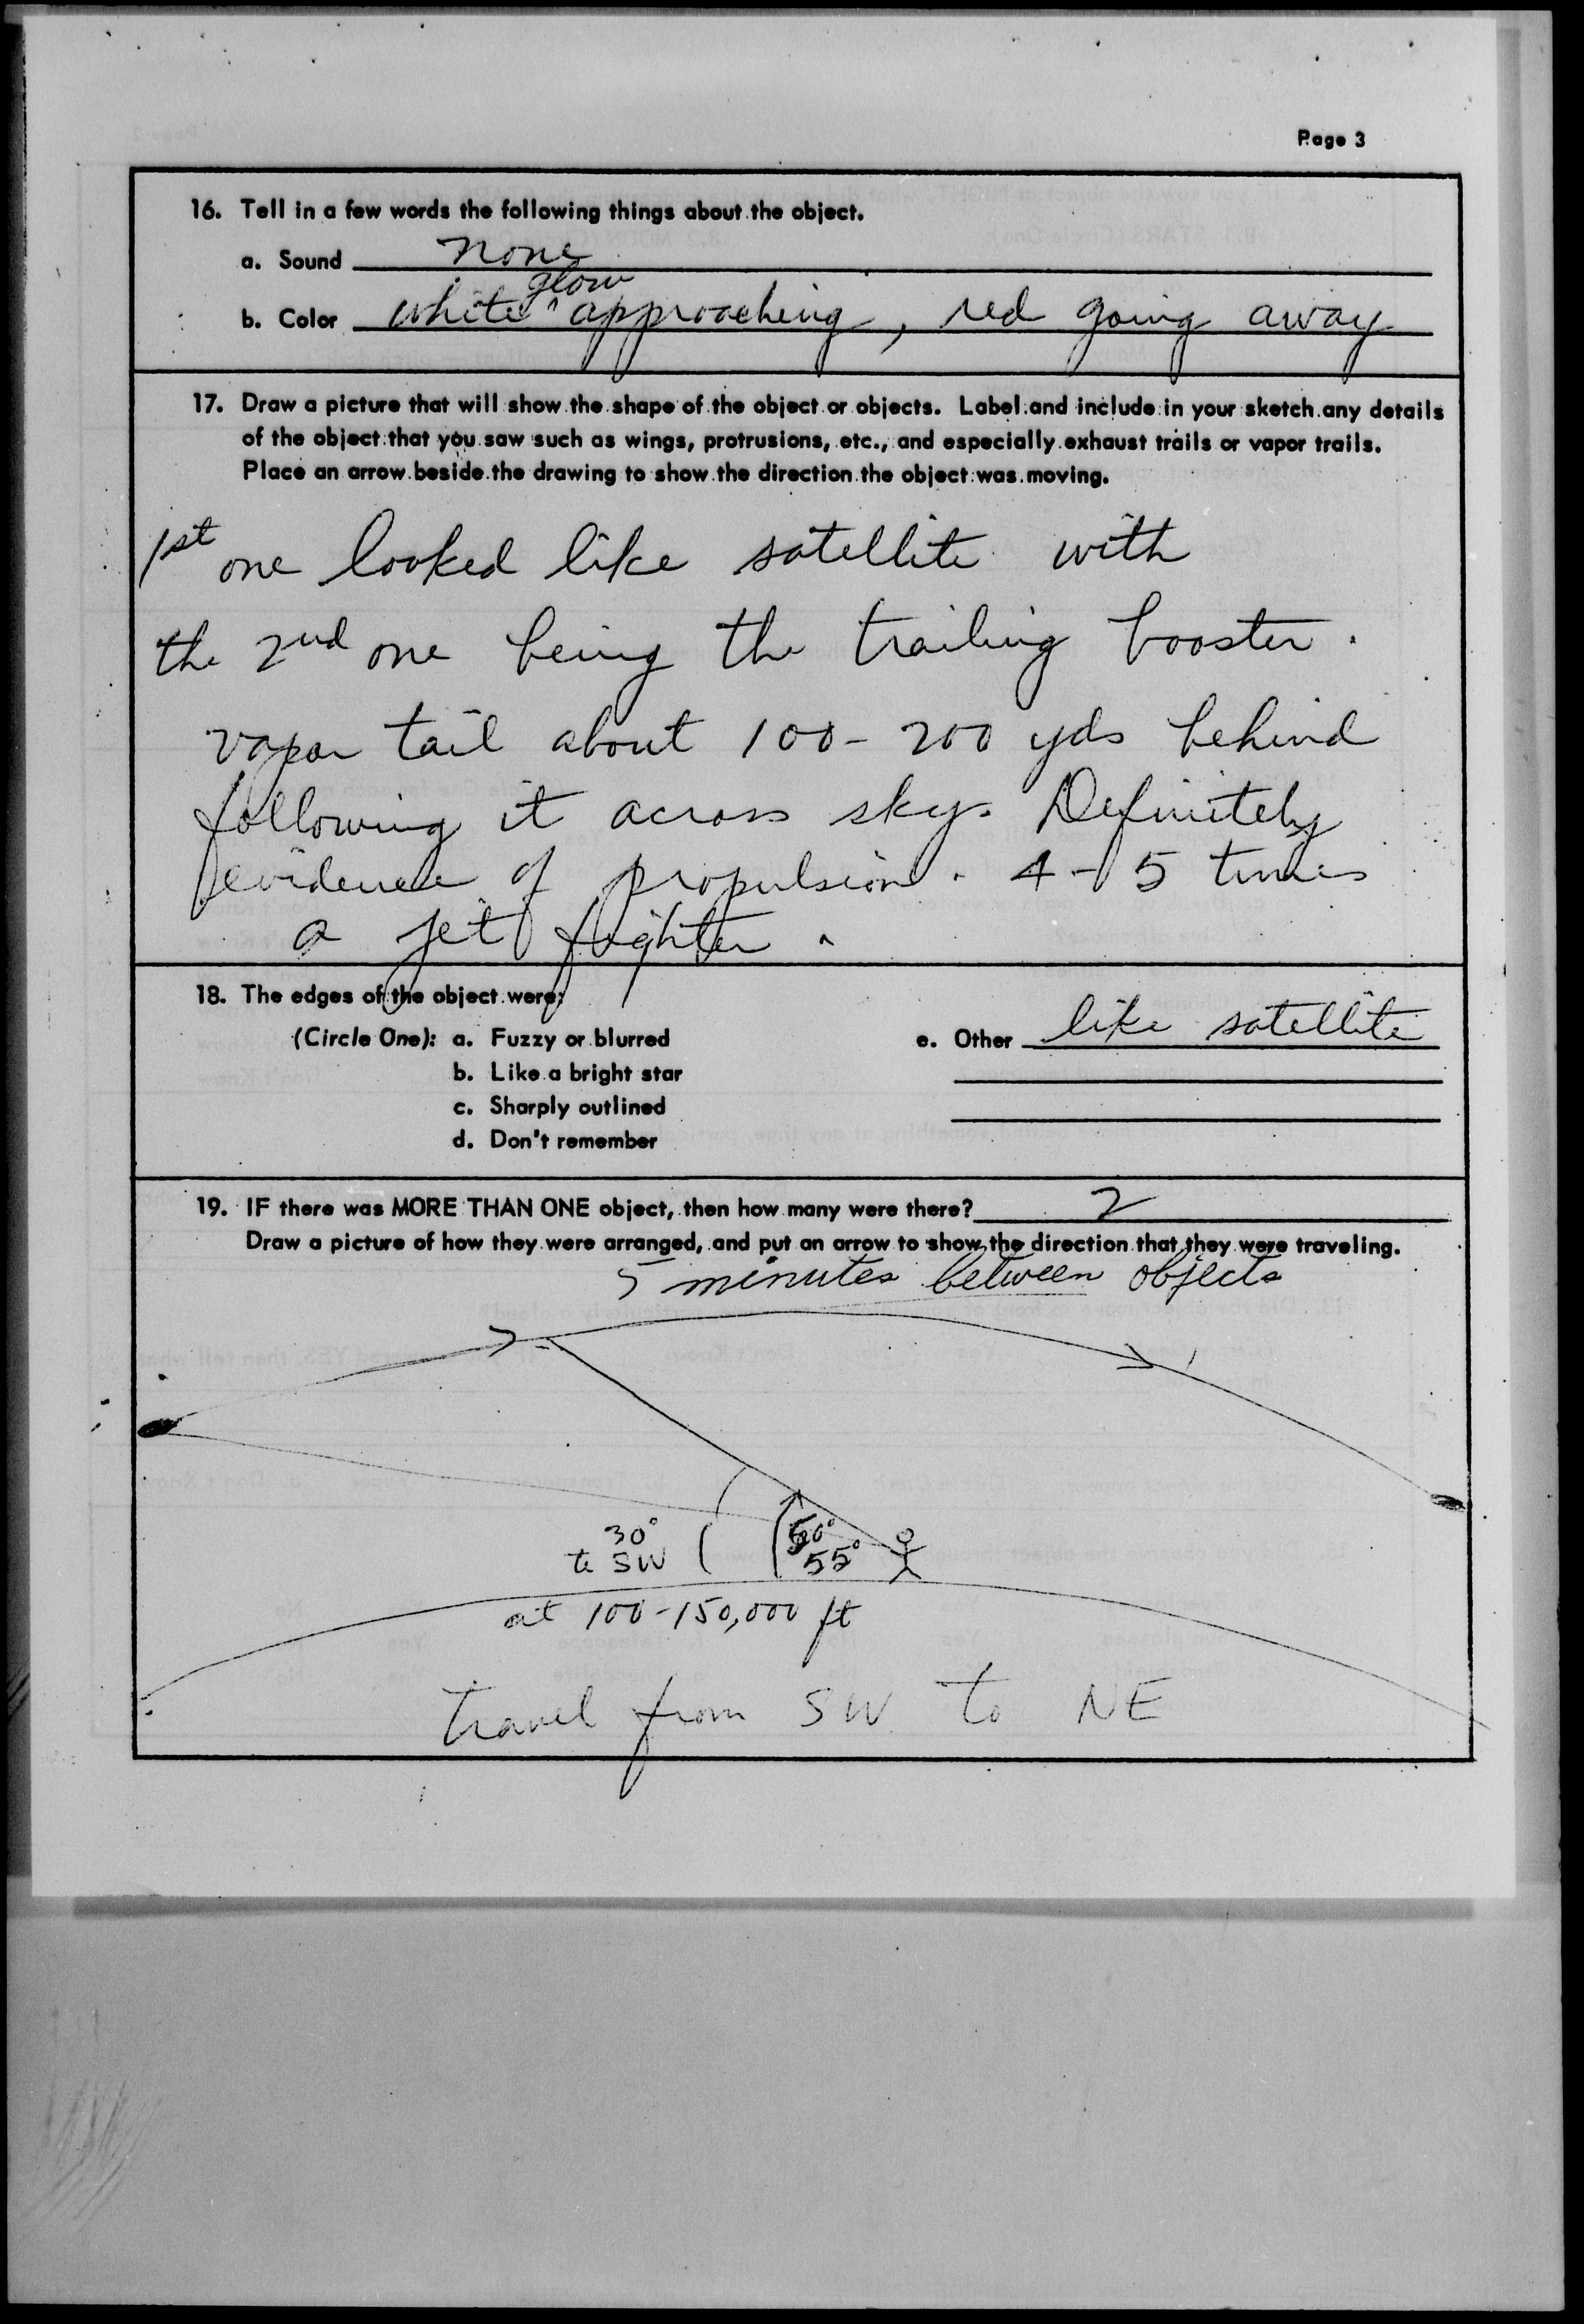 Page 3
16. Tell in a few words the following things about the object.
a. Sound none
b. Color white glow approaching, red going away
17. Draw a picture that will show the shape of the object or objects. Label and include in your sketch any details
of the object that you saw such as wings, protrusions, etc., and especially exhaust trails or vapor trails.
Place an arrow beside the drawing to show the direction the object was moving.
1st one looked like satellite with
the 2nd one being the trailing booster.
vapor tail about 100-200 yds behind
following it across sky. Definitely
evidence of propulsion. 4-5 times
a jet fighter.
18. The edges of the object were:
(Circle One): a. Fuzzy or blurred e. Other like satellite
b. Like a bright star
c. Sharply outlined
d. Don't remember
19. IF there was MORE THAN ONE object, then how many were there? 2
Draw a picture of how they were arranged, and put an arrow to show the direction that they were traveling.
5 minutes between objects
30° 50°
to SW 55°
at 100-150,000 ft
travel from SW to NE